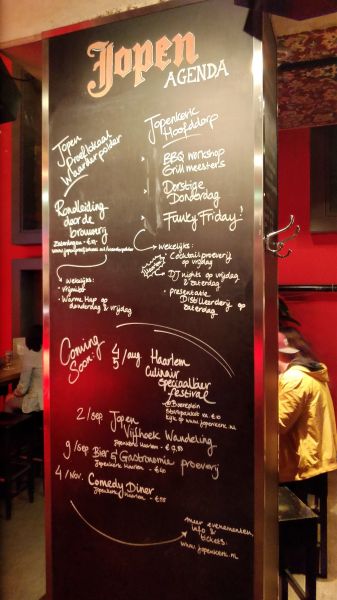 Jopen
AGENDA
Jopen
Proeflokaal
Waarderpolder
Rondleiding
door de
brouwerij
wekelijks:
- Vrijmibo
- Warme Hap op
donderdag & vrijdag
Jopenkerk
Hoofddorp
BBQ workshop
Grillmeesters
Dorstige
Donderdag
Funky Friday!
wekelijks:
- Cocktailproeverij
op vrijdag
- DJ nights op vrijdag
& zaterdag
- presentatie
Distilleerderij op
zaterdag
Coming
Soon:
4/aug Haarlem
5/ Culinair
Speciaalbier
festival
@Botermarkt
Startpakket va €10
kijk op www.jopenkerk.nl
2/sep Jopen
Vijfhoek Wandeling
Jopenkerk Haarlem -
9/sep Bier & Gastronomie proeverij
Jopenkerk Haarlem -
4/nov. Comedy Diner
Jopenkerk Haarlem -
meer evenementen,
info &
tickets:
www.jopenkerk.nl